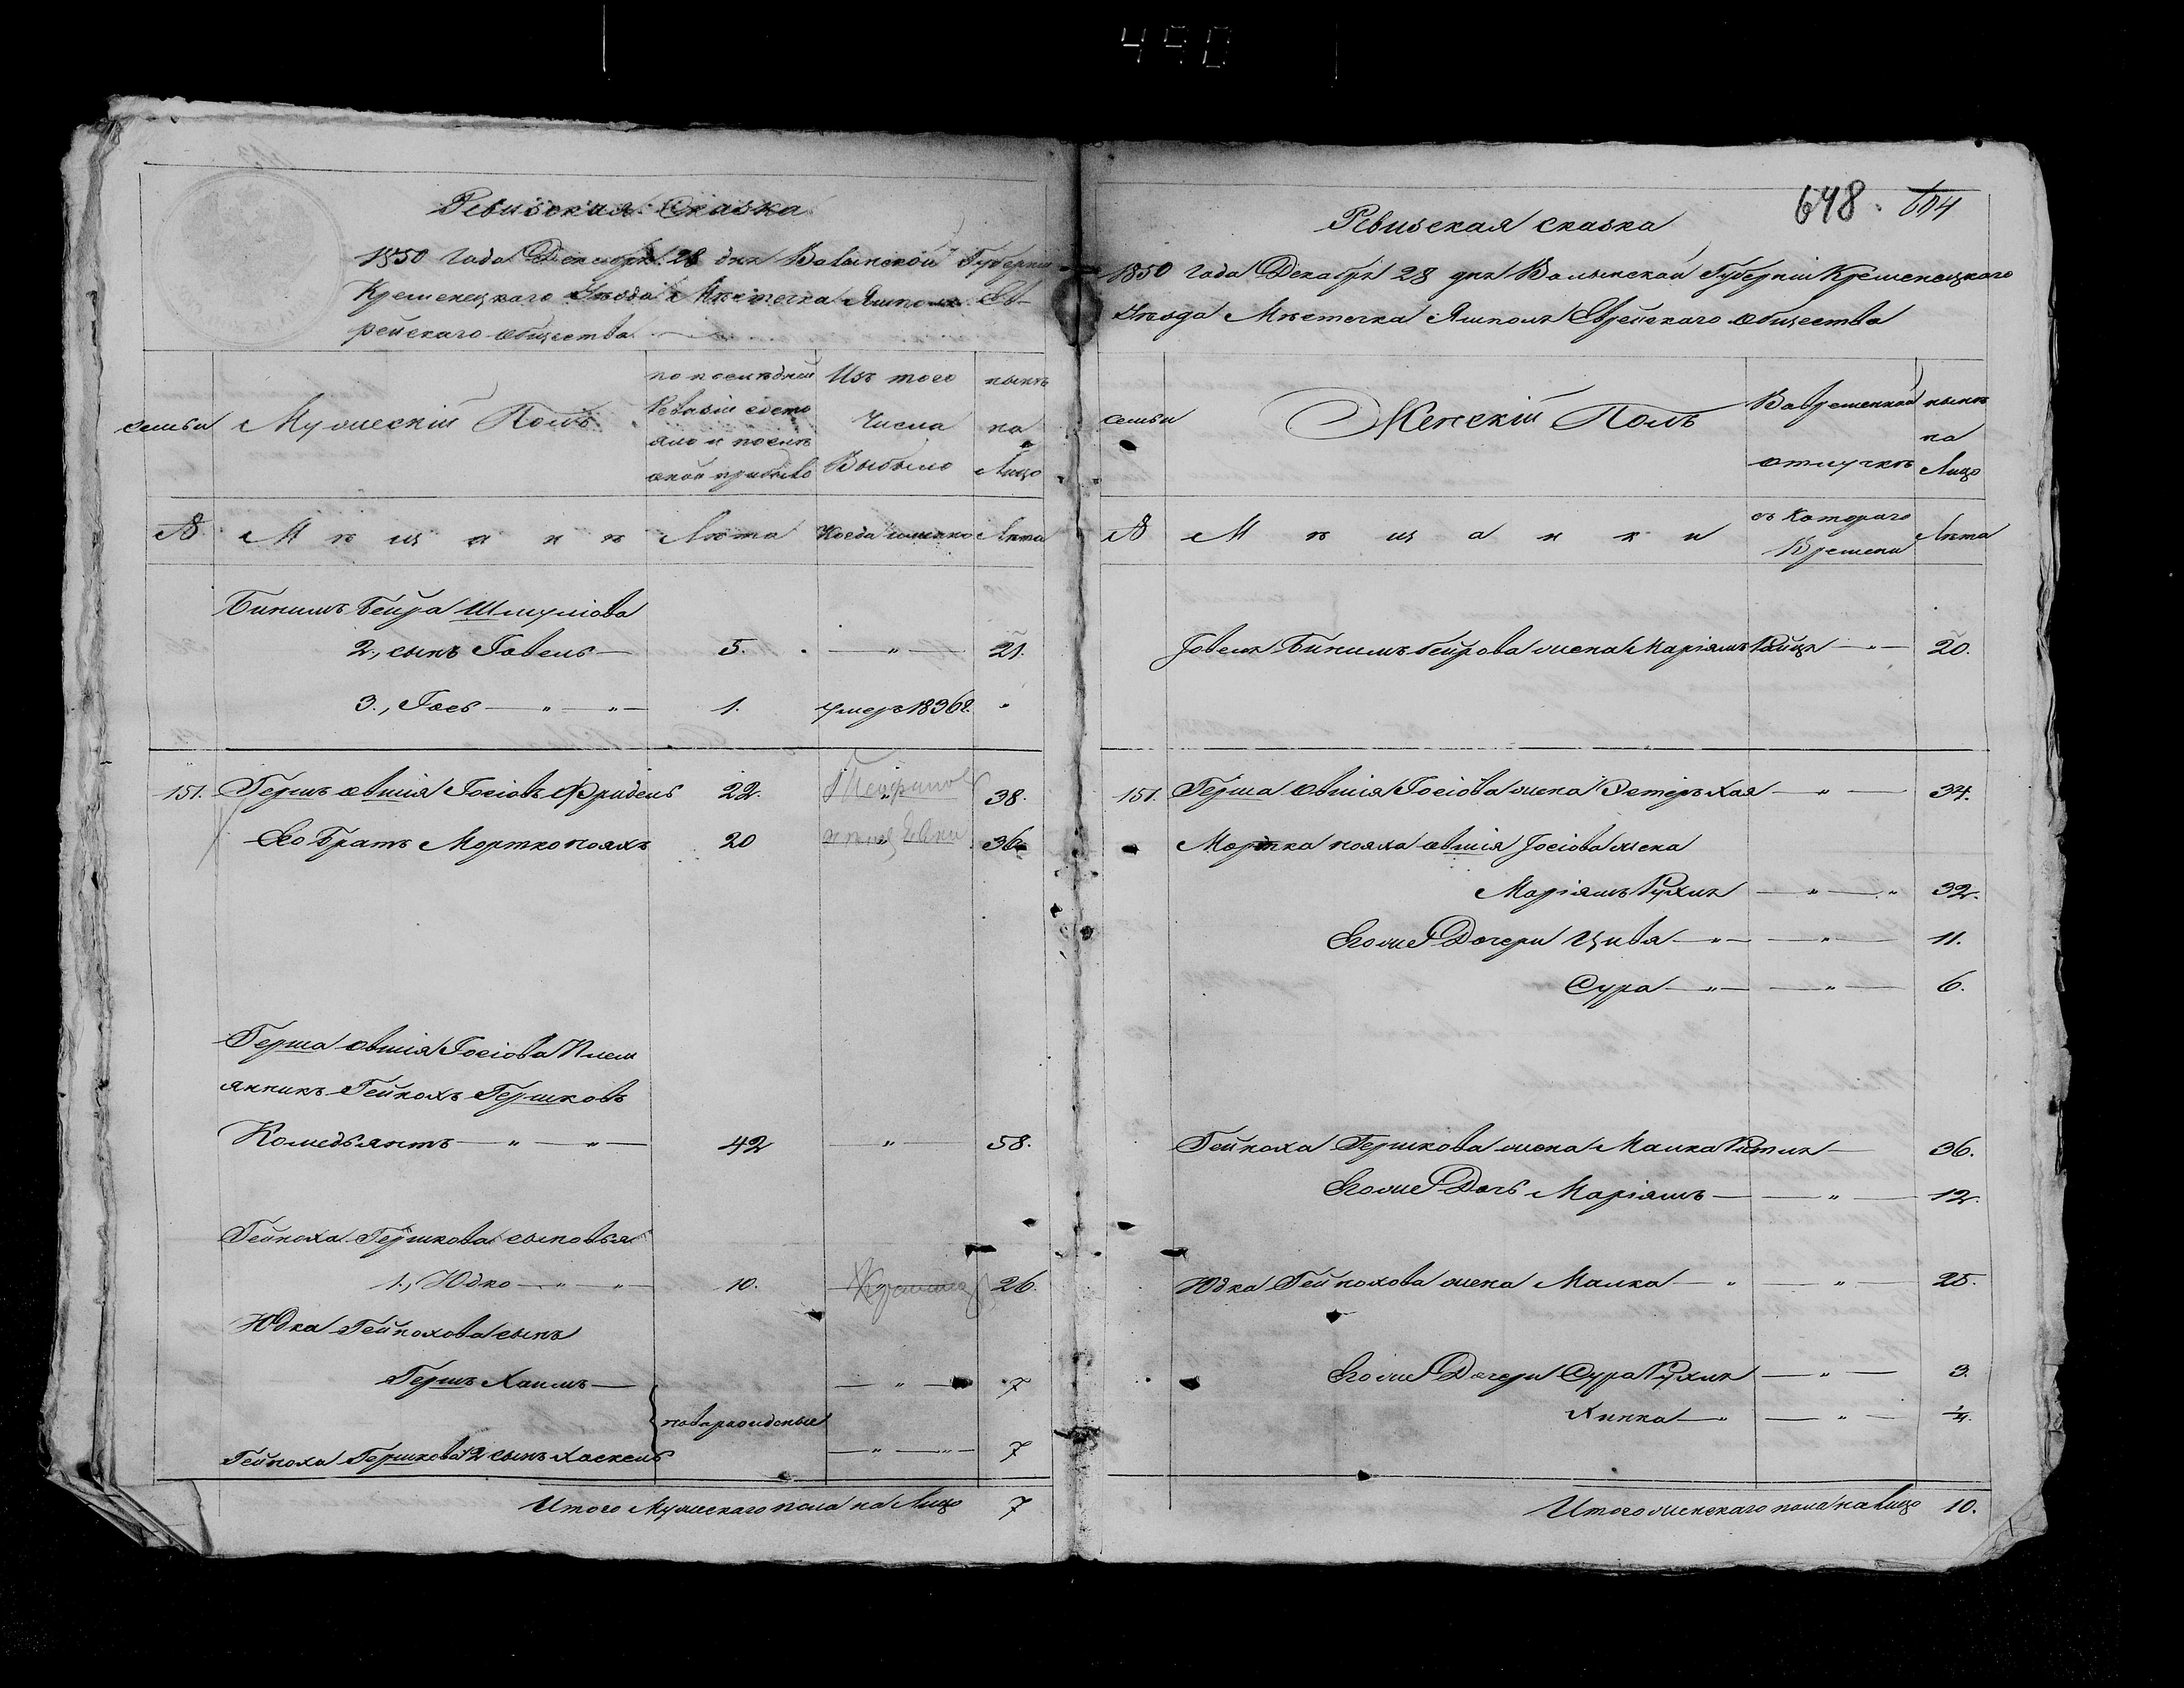 490
Ревизская Сказка
1850 Года Декабря 28 дня Волынской Губерніи
Кременецкаго Уезда Местечка Ямполя Ев-
рейскаго общества
семьи
Мужескій Полъ
по последней
Ревизіи состо
яло и после
оной прибыло
Изъ того
Числа
Выбыло
ныне
на
Лицо
№
Мещане
Лета
Когда именно
Лета
Бинимъ Бейра Шмуліова
2., сынъ Іовель — 5. — " — 21.
3., Іось — " — " — 1. умеръ 1836 г. "
151. Гершъ овшія Іосіовъ Фридель 22. 38.
Его Братъ Мортко поахъ 20 36.
Герша овшія Іосіова Плем
янникъ Гейнохъ Гершковъ
Комедьянтъ — " — " — 42 — " — 58.
Гейноха Гершкова сыновья
1., Юдко — " — " 10. 26.
Юдка Гейнохова сынъ
Гершъ Хаимъ — — " — 7
новорожденые
Гейноха Гершкова 2 сынъ Хаскель — " — " — 7
Итого Мужескаго пола на Лицо 7
648. 604
Ревизская сказка
1850 Года Декабря 28 дня Волынской Губерніи Кременецкаго
Уезда Местечка Ямполя Еврейскаго общества
семьи
Женскій Полъ
Во временной
отлучке
ныне
на
Лицо
№
Мещанки
съ Котораго
Времени
Лета
Іовеля Бинимъ бейрова жена Маріямъ — " — 20.
151. Герша Овшія Іосіова жена Эстеръ Хая — " — 34.
Мортка поаха овшія Іосіова жена
Маріямъ Рухля — " — " 32.
Егоже Дочери Цивя — " — — " — 11.
Сура — " — — " — 6.
Гейноха Гершкова жена Малка — 36.
Егоже Дочь Маріямъ — — " — 12.
Юдка Гейнохова жена Малка — " — " — 25.
Егоже Дочери Сура Рухля — " — 3.
Хинка — " — " — 1/4.
Итого женскаго пола на лицо 10.